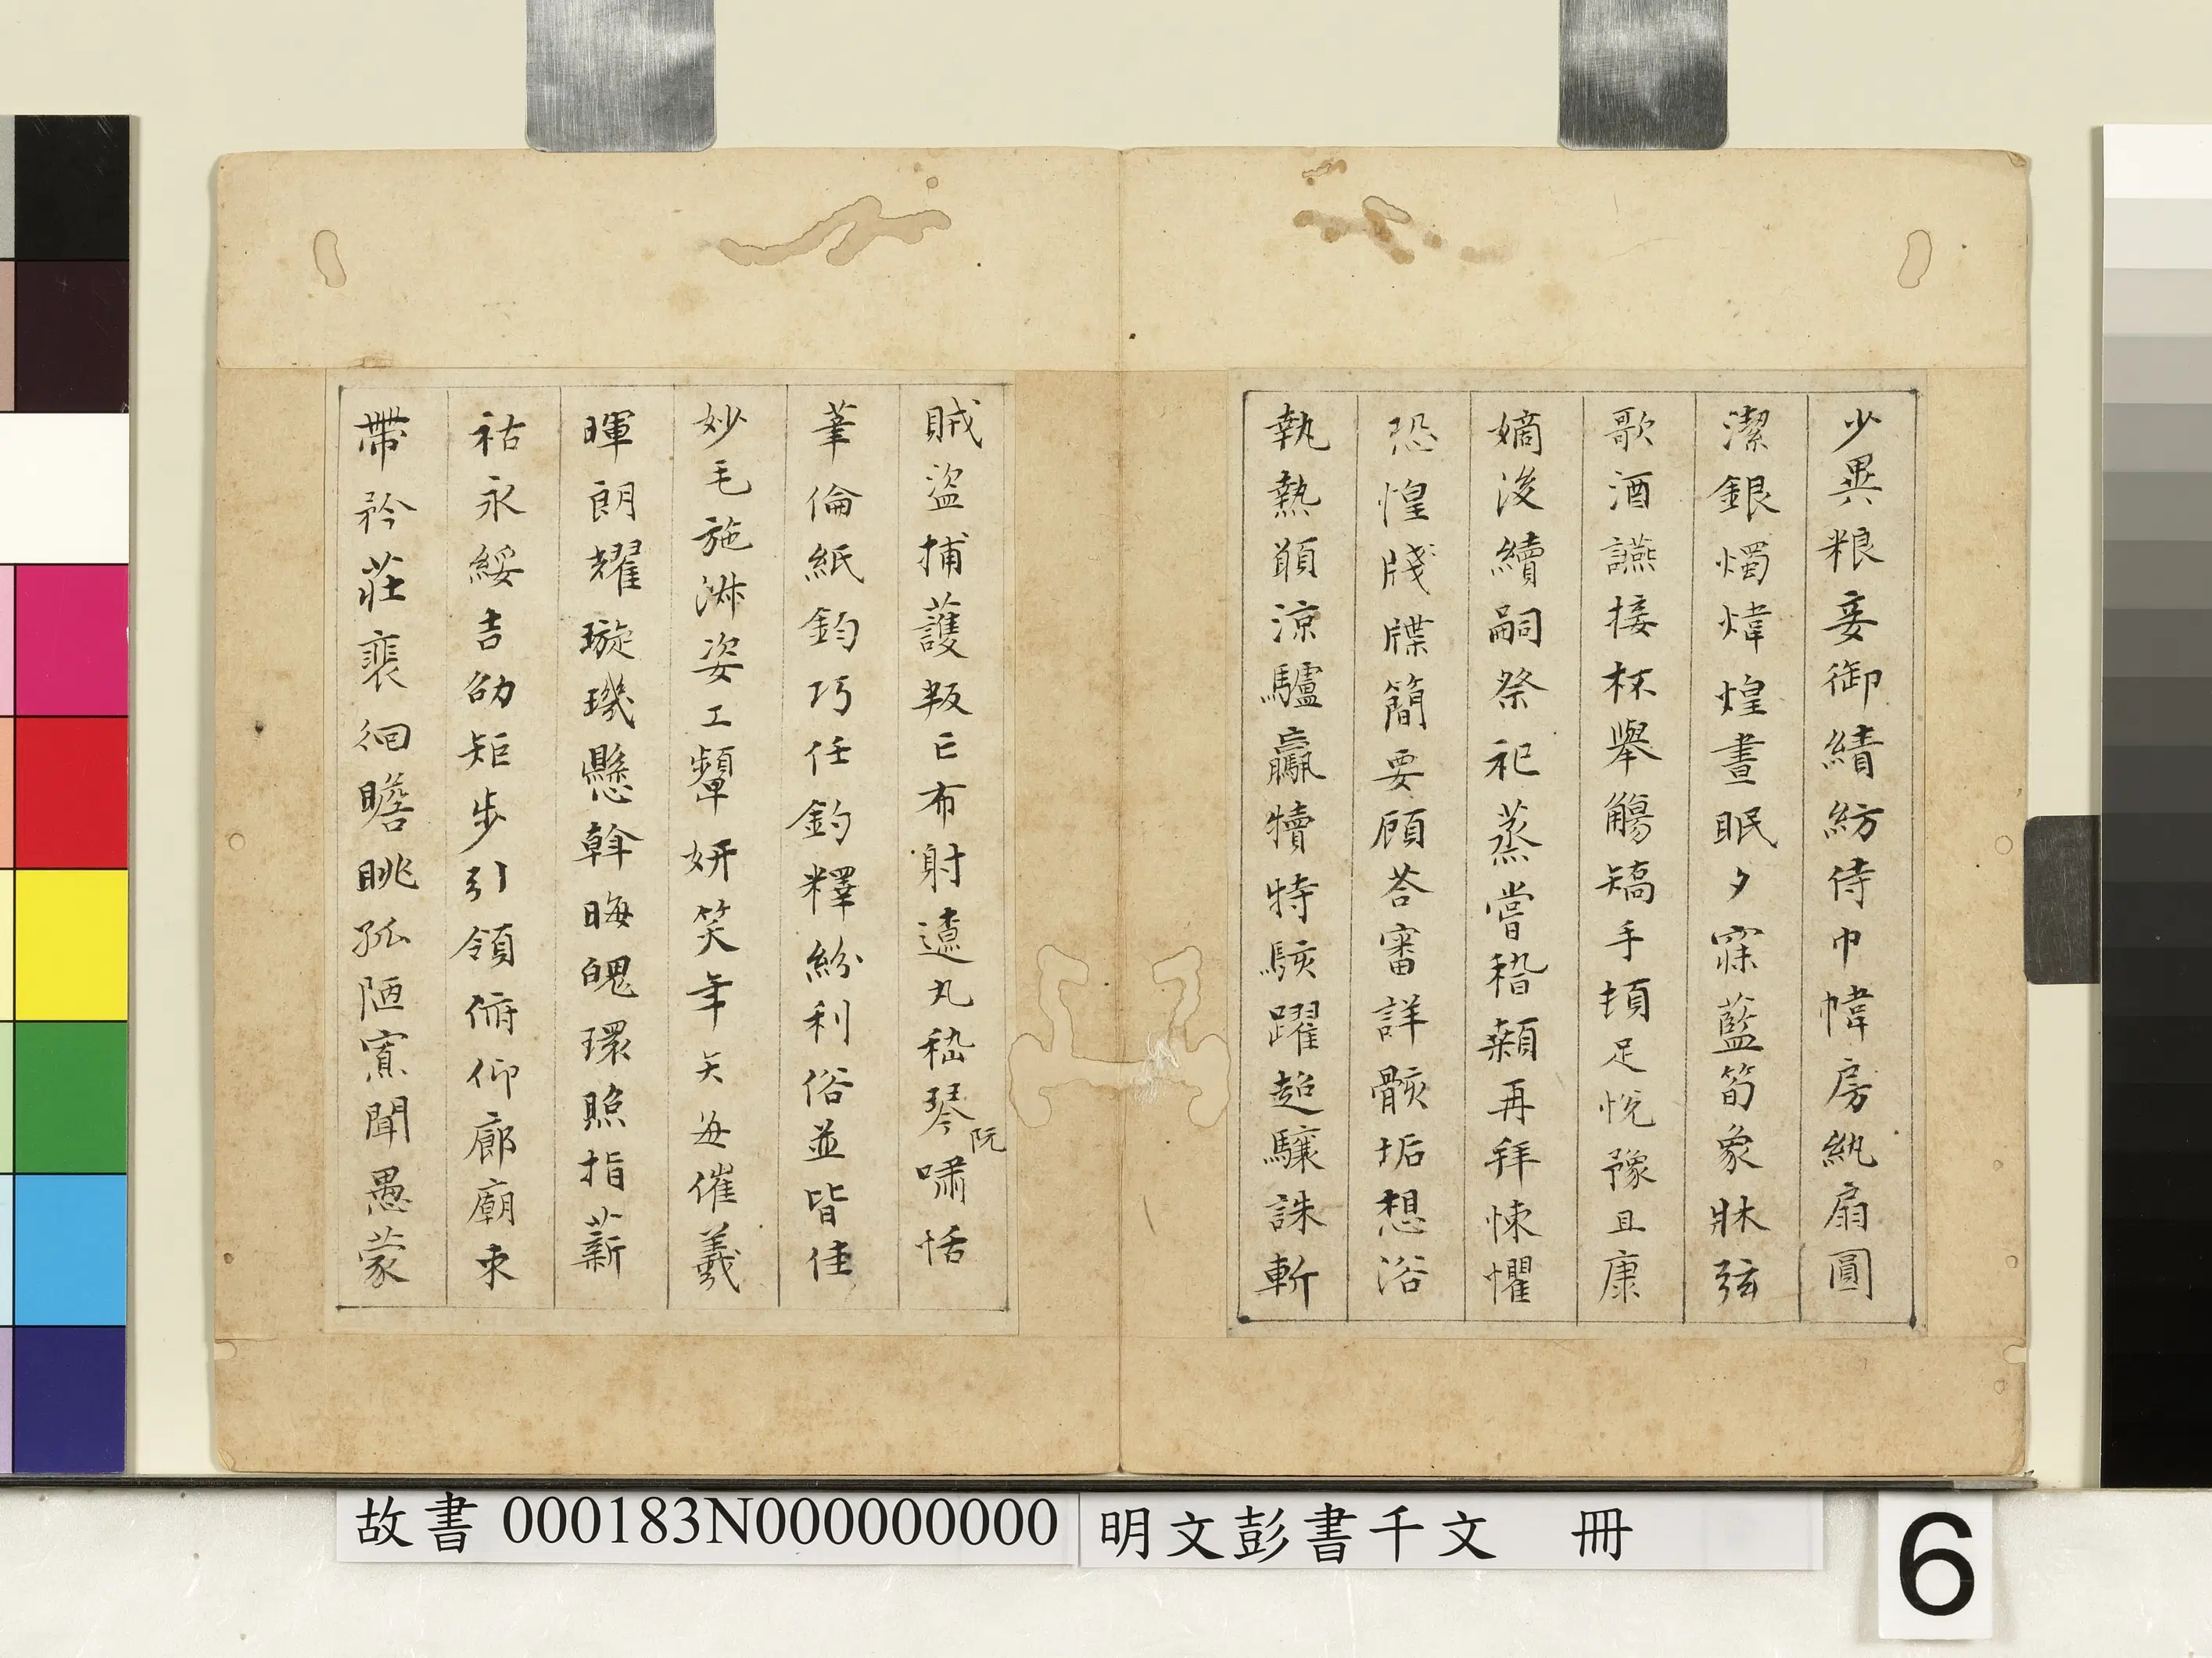 少異粮妾御績紡侍巾幃房紈扇圓
潔銀燭煒煌晝眠夕寐藍筍象牀弦
歌酒讌接杯舉觴矯手頓足悅豫且康
嫡後續嗣祭祀蒸嘗稽顙再拜悚懼
恐惶牋牒簡要顧荅審詳骸垢想浴
執熱願涼驢驘犢特駭躍超驤誅斬
賊盜捕護叛亡布射遼丸嵇琴阮嘯恬
筆倫紙鈞巧任釣釋紛利俗並皆佳
妙毛施淑姿工顰妍笑年矢每催羲
暉朗耀璇璣懸斡晦魄環照指薪
祜永綏吉劭矩步引領俯仰廊廟束
帶矜莊裴徊瞻眺孤陋寡聞愚蒙
故書 000183N000000000
明文彭書千文 冊
6